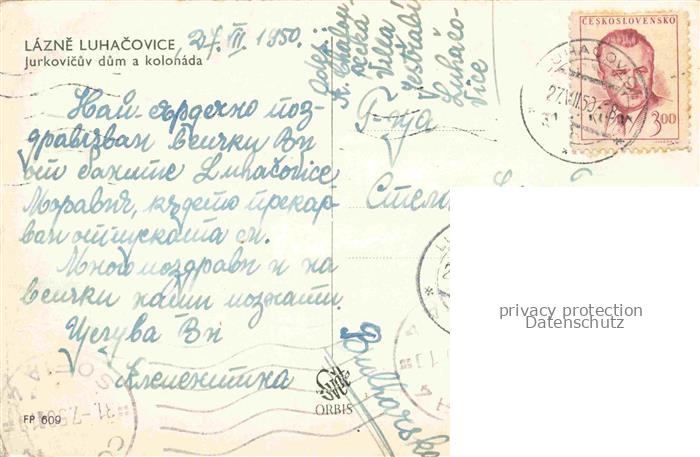 LÁZNĚ LUHAČOVICE
Jurkovičův dům a kolonáda
27. VII. 1950.
Най сърдечно поз-
дравявам всички Ви
от баните Luhačovice
Моравия, където прекар-
вам отпуската си.
Много поздрави и на
всички наши познати.
Целува Ви
Клементина
FP 609
Adr.:
A.
Villa
Jestřábí
Luhačo-
vice
Г-жа
ČESKOSLOVENSKO
3,00
LUHAČOVICE
ORBIS
Bulharsko
SOFIA
31.7.50
privacy protection
Datenschutz